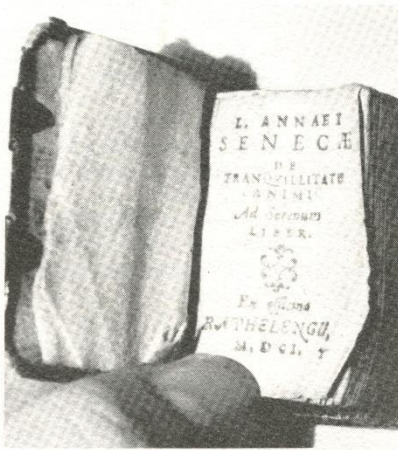 L. ANNAEI
SENECÆ
DE
TRANQVILLITATE
ANIMI
Ad Serenum
LIBER.
Ex officina
RAPHELENGII,
M. D CI.